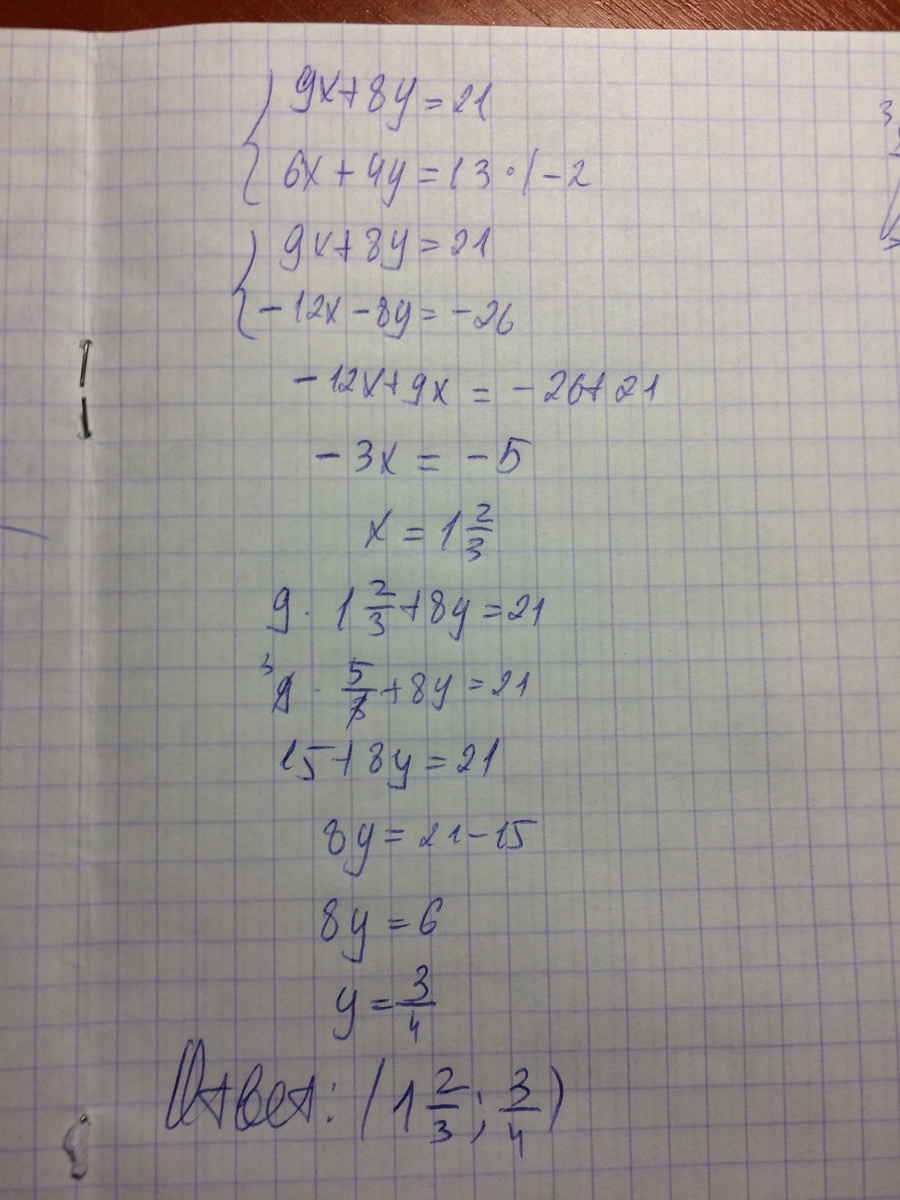 9x+8y=21
6x+4y=13 ·/-2
9x+8y=21
-12x-8y=-26
-12x+9x=-26+21
-3x=-5
x=1 2/3
9·1 2/3+8y=21
3 9·5/3+8y=21
15+8y=21
8y=21-15
8y=6
y=3/4
Ответ: (1 2/3; 3/4)